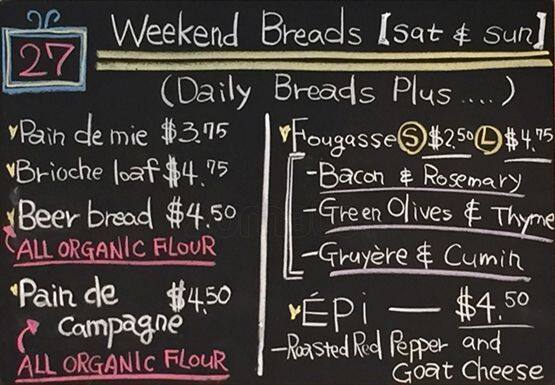 27
Weekend Breads [Sat & Sun]
(Daily Breads Plus....)
Pain de mie $3.75
Brioche loaf $4.75
Beer bread $4.50
ALL ORGANIC FLOUR
Pain de $4.50
Campagne
ALL ORGANIC FLOUR
Fougasse S $2.50 L $4.75
-Bacon & Rosemary
-Green Olives & Thyme
-Gruyère & Cumin
ÉPi — $4.50
-Roasted Red Pepper and
Goat Cheese